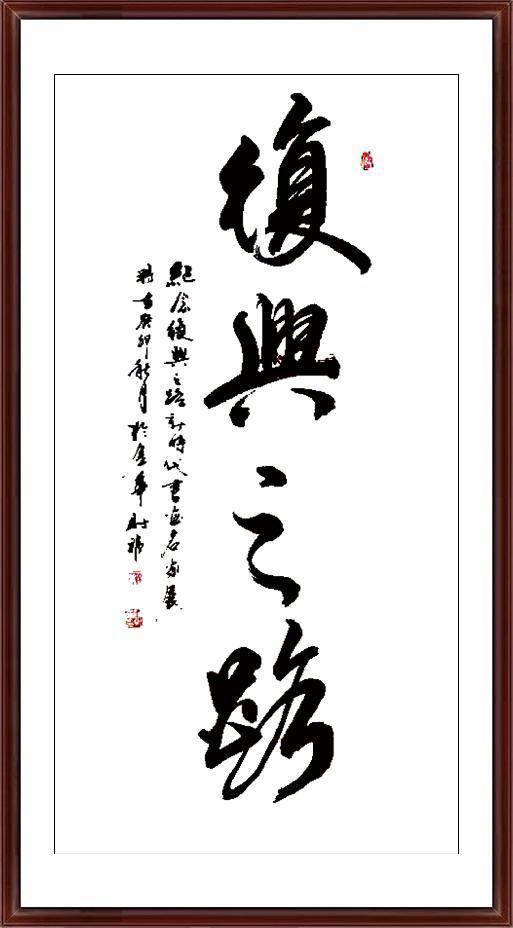 復興之路
紀念復興之路新時代書画名家展
癸卯秋月於金華